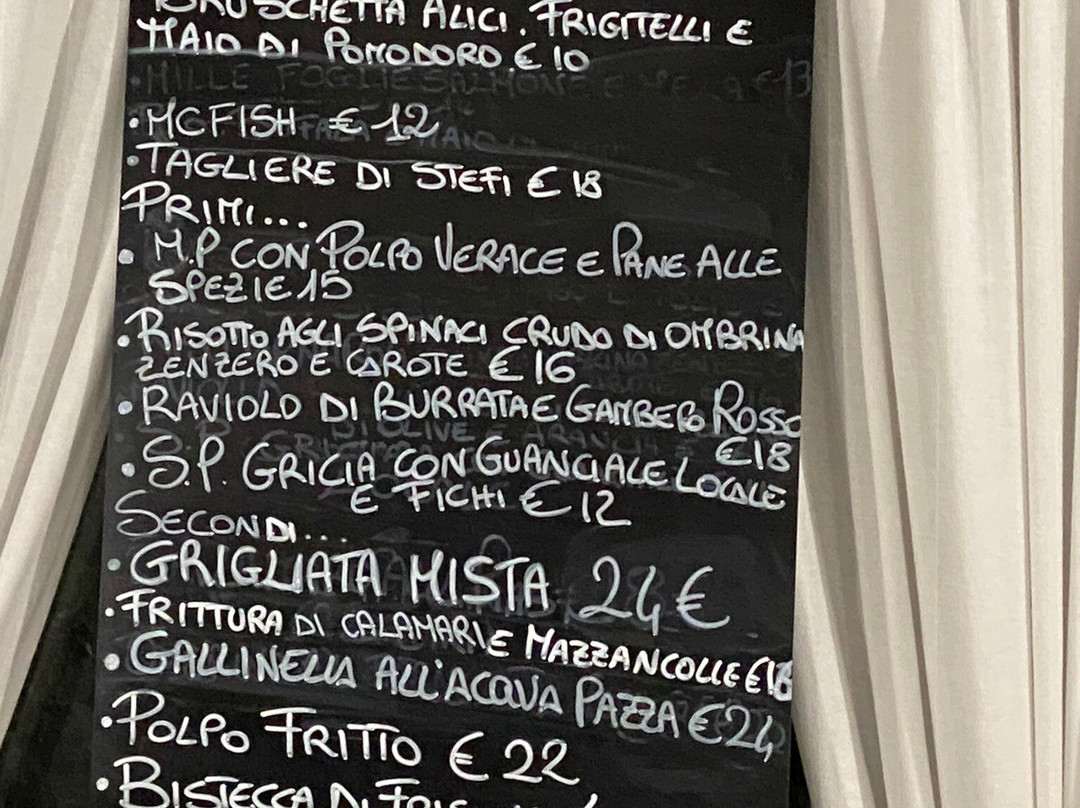 BRUSCHETTA ALICI. FRIGITELLI E
MAIO DI POMODORO € 10
• MILLE FOGLIE SALMONE E MELA € 13
• MCFISH € 12
• TAGLIERE DI STEFI € 18
PRIMI...
• M.P CON POLPO VERACE E PANE ALLE
SPEZIE 15
• RISOTTO AGLI SPINACI CRUDO DI OMBRINA
ZENZERO E CAROTE € 16
• RAVIOLO DI BURRATA E GAMBERO ROSSO
€18
• S.P. GRICIA CON GUANCIALE LOCALE
E FICHI € 12
SECONDI...
• GRIGLIATA MISTA 24 €
• FRITTURA DI CALAMARI E MAZZANCOLLE €16
• GALLINELLA ALL'ACQUA PAZZA € 24
• POLPO FRITTO € 22
• BISTECCA DI